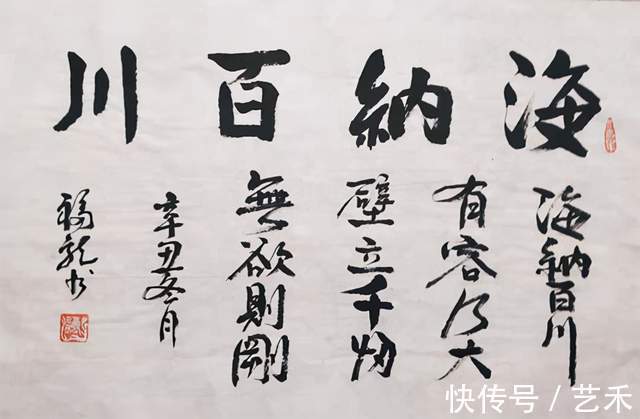 海納百川
海納百川
有容乃大
壁立千仞
無欲則剛
辛丑冬月
福龙书
快传号 / 艺禾